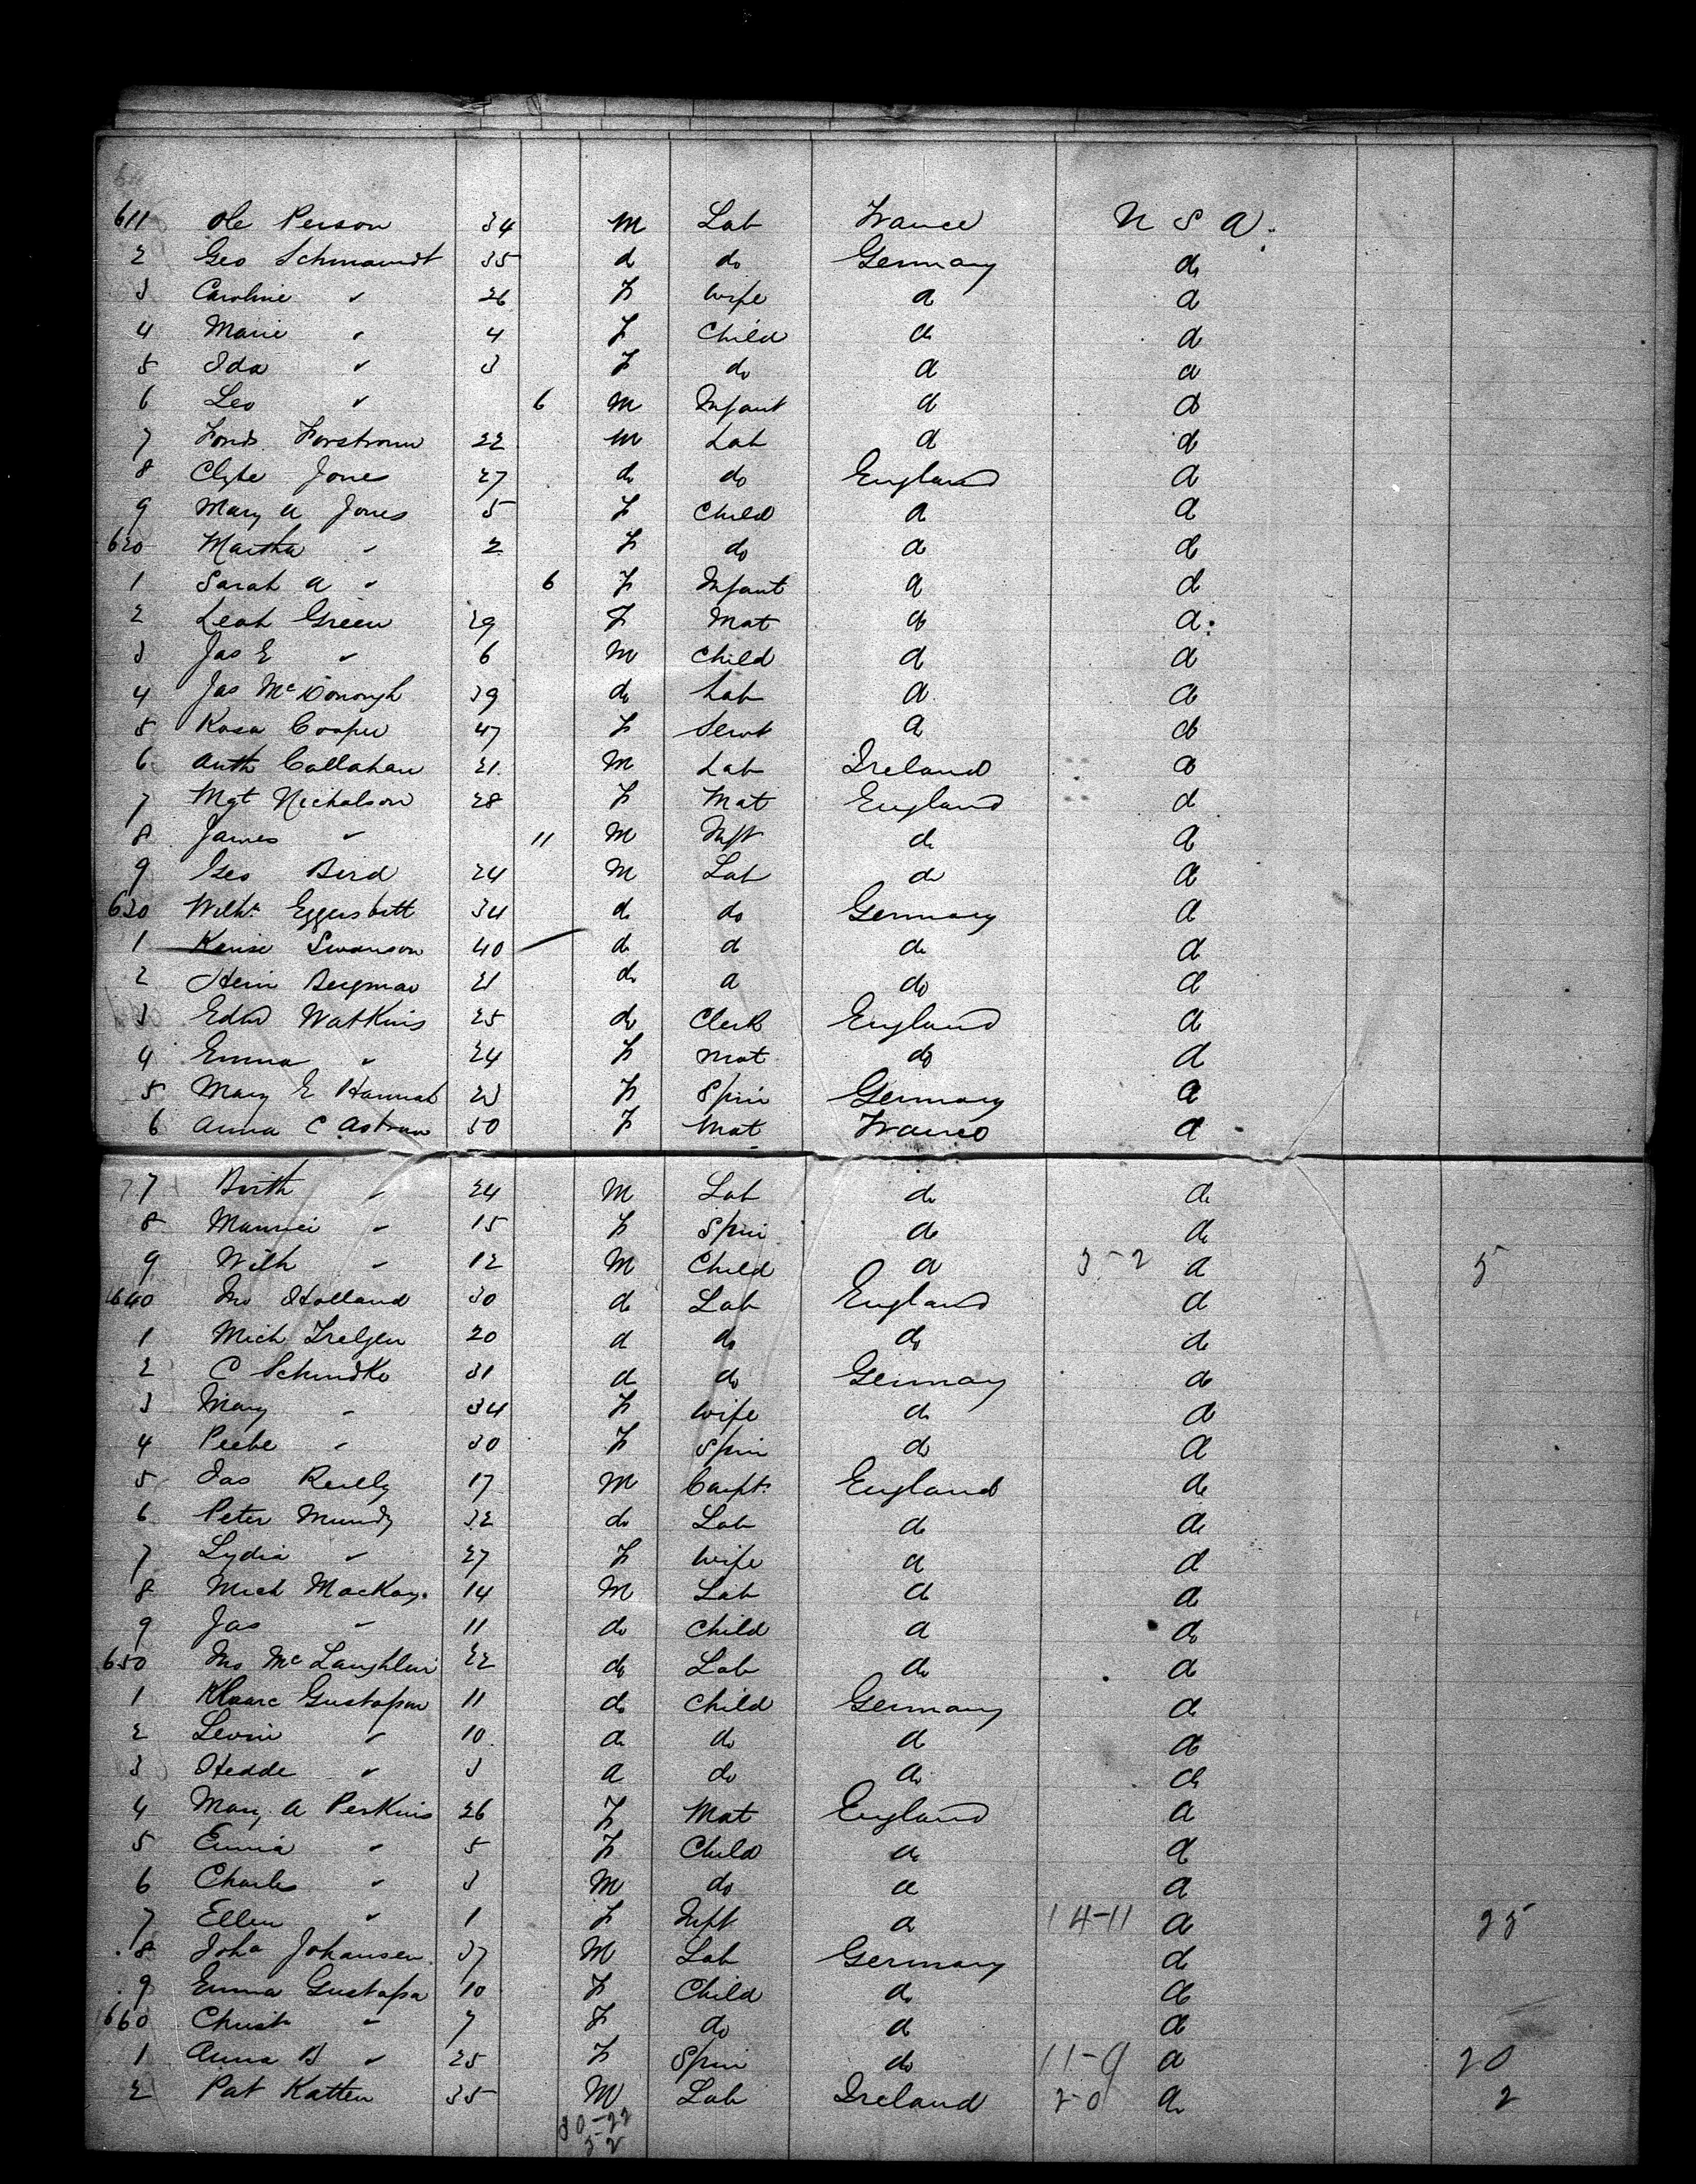 611 Ole Person 34 M Lab France U S A.
2 Geo Schmaundt 35 do do Germany do
3 Caroline " 26 F Wife do do
4 Marie " 4 F Child do do
5 Ida " 3 F do do do
6 Leo " 6 M Infant do do
7 Forstrom 22 M Lab do do
8 Clyde Jones 27 do do England do
9 Mary A Jones 5 F Child do do
620 Martha " 2 F do do do
1 Sarah A " 6 F Infant do do
2 Leah Green 29 F Mat do do
3 Jas E " 6 M Child do do
4 Jas McDonough 39 do Lab do do
5 Rosa Cooper 47 F Servt do do
6 Anth Callahan 21 M Lab Ireland do
7 Mgt Nicholson 28 F Mat England do
8 James " 11 M Inft do do
9 Geo Bird 24 M Lab do do
630 Wilhm 34 do do Germany do
1 Swanson 40 do do do do
2 Bergman 21 do do do do
3 Edwd Watkins 25 do Clerk England do
4 Emma " 24 F Mat do do
5 Mary E Hannah 23 F Spin Germany do
6 Anna C Astrom 50 F Mat France do
7 Birth " 24 M Lab do do
8 " 15 F Spin do do
9 Wilh " 12 M Child do 3-2 do 5
640 Jno Holland 30 do Lab England do
1 Mich 20 do do do do
2 C Schmidke 31 do do Germany do
3 Mary " 34 F Wife do do
4 " 30 F Spin do do
5 Jas Reilly 17 M Carpt. England do
6 Peter Mundy 32 do Lab do do
7 Lydia " 27 F Wife do do
8 Mich MacKay. 14 M Lab do do
9 Jas " 11 do Child do do
650 Jno McLaughlin 22 do Lab do do
1 Gustafson 11 do Child Germany do
2 Levin " 10 do do do do
3 Hedde " 3 do do do do
4 Mary A Perkins 26 F Mat England do
5 Emma " 5 F Child do do
6 Charles " 3 M do do do
7 Ellen " 1 F Inft do 14-11 do 25
8 Joha Johansen 37 M Lab Germany do
9 Emma Gustafsn 10 F Child do do
660 Christ " 7 F do do do
1 Anna B " 25 F Spin do 11-9 do 20
2 Pat Katten 35 M Lab Ireland 2-0 do 2
30-22
3-2